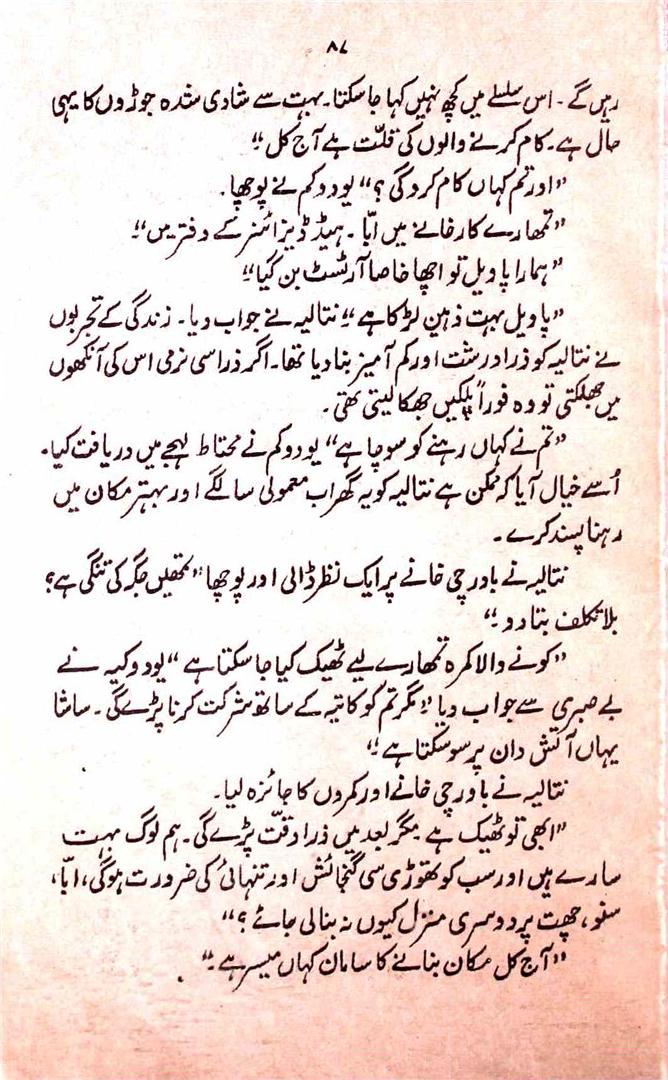 ۸۷
رہیں گے۔ اس سلسلے میں کچھ نہیں کہا جا سکتا۔ بہت سے شادی شدہ جوڑوں کا یہی
حال ہے۔ کام کرنے والوں کی قلّت ہے آج کل۔“
”اور تم کہاں کام کرو گی؟“ یودوکم نے پوچھا۔
”تمھارے کارخانے میں ابّا۔ ہیڈ ڈیزائنر کے دفتر میں۔“
”ہمارا پاویل تو اچھا خاصا آرٹسٹ بن گیا۔“
”پاویل بہت ذہین لڑکا ہے“، نتالیہ نے جواب دیا۔ زندگی کے تجربوں
نے نتالیہ کو ذرا درشت اور کم آمیز بنا دیا تھا۔ اگر ذرا سی نرمی اس کی آنکھوں
میں جھلکتی تو وہ فوراً پلکیں جھکا لیتی تھی۔
”تم نے کہاں رہنے کو سوچا ہے“ یودوکم نے محتاط لہجے میں دریافت کیا۔
اُسے خیال آیا کہ ممکن ہے نتالیہ کو یہ گھر اب معمولی سا لگے اور بہتر مکان میں
رہنا پسند کرے۔
نتالیہ نے باورچی خانے پر ایک نظر ڈالی اور پوچھا ”تمھیں جگہ کی تنگی ہے؟
بلا تکلف بتا دو۔“
”کونے والا کمرہ تمھارے لیے ٹھیک کیا جا سکتا ہے“ یودوکیہ نے
بے صبری سے جواب دیا ”مگر تم کو کاتیہ کے ساتھ شرکت کرنا پڑے گی۔ ساشا
یہاں آتش دان پر سو سکتا ہے۔“
نتالیہ نے باورچی خانے اور کمروں کا جائزہ لیا۔
”ابھی تو ٹھیک ہے مگر بعد میں ذرا دقّت پڑے گی۔ ہم لوگ بہت
سارے ہیں اور سب کو تھوڑی سی گنجائش اور تنہائی کی ضرورت ہو گی، ابّا،
سنو، چھت پر دوسری منزل کیوں نہ بنا لی جائے؟“
”آج کل مکان بنانے کا سامان کہاں میسر ہے۔“